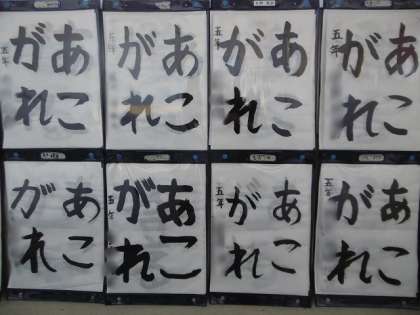 あこ
がれ
五年
あこ
がれ
五年
あこ
がれ
五年
あこ
がれ
五年
あこ
がれ
あこ
がれ
五年
あこ
がれ
五年
あこ
がれ
五年